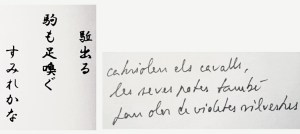 駈出る
駒も足嗅ぐ
すみれかな
cabriolen els cavalls,
les seves potes també
fan olor de violetes silvestres